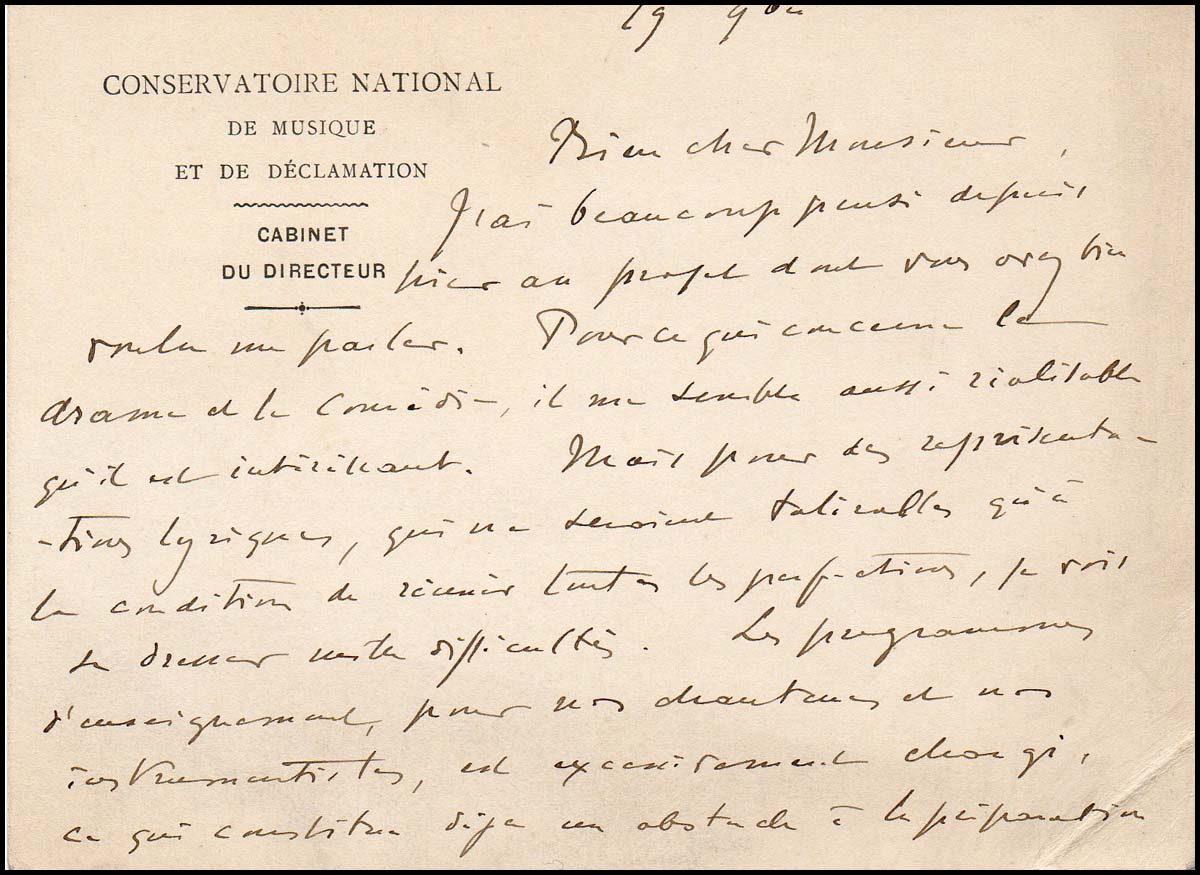 19 9bre
CONSERVATOIRE NATIONAL
DE MUSIQUE
ET DE DÉCLAMATION
CABINET
DU DIRECTEUR
Bien cher Monsieur,
J'ai beaucoup pensé depuis
hier au projet dont vous avez bien
voulu me parler. Pour ce qui concerne le
drame et la Comédie, il me semble aussi réalisable
qu'il est intéressant. Mais pour des représenta-
-tions lyriques, qui ne seraient tolérables qu'à
la condition de réunir toutes les perfections, je vois
se dresser mille difficultés. Les programmes
d'enseignement, pour nos chanteurs et nos
instrumentistes, est excessivement chargé,
ce qui constitue déjà un obstacle à la préparation